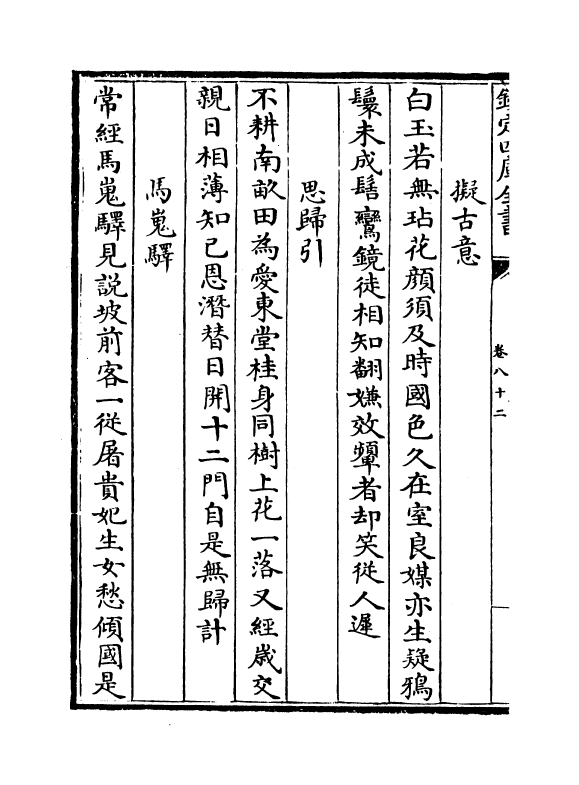 欽定四庫全書
卷八十二
擬古意
白玉若無玷花顔須及時國色久在室良媒亦生疑鴉
鬟未成髻鸞鏡徒相知翻嫌效顰者却笑從人遲
思歸引
不耕南畝田為愛東堂桂身同樹上花一落又經歲交
親日相薄知已恩潛替日開十二門自是無歸計
馬嵬驛
常經馬嵬驛見說坡前客一從屠貴妃生女愁傾國是